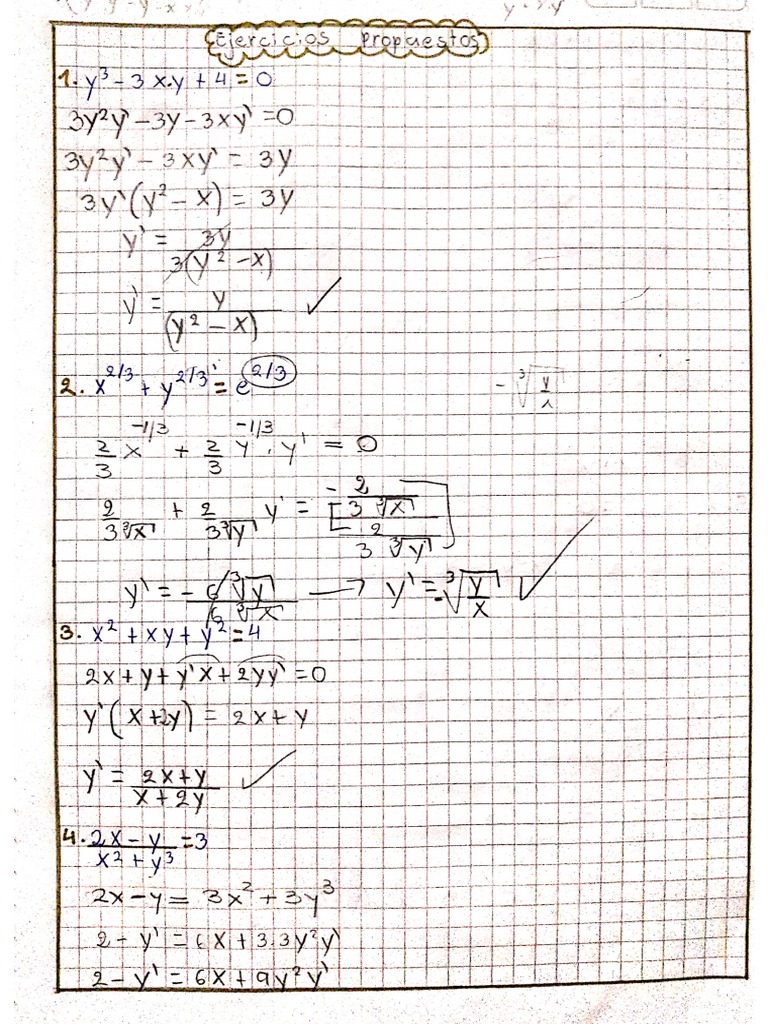 Ejercicios Propuestos
1. y³ - 3x.y + 4 = 0
3y²y' - 3y - 3xy' = 0
3y²y' - 3xy' = 3y
3y'(y² - x) = 3y
y' = 3y / 3(y² - x)
y' = y / (y² - x) ✓
2. x^2/3 + y^2/3 = e^2/3
- ∛(y/x)
2/3 x^-1/3 + 2/3 y^-1/3 . y' = 0
2/(3∛x) + 2/(3∛y) y' = [- 2/(3∛x) / 2/(3∛y)]
y' = - 6∛y / 6∛x → y' = -∛(y/x) ✓
3. x² + xy + y² = 4
2x + y + y'x + 2yy' = 0
y'(x+2y) = 2x + y
y' = 2x+y / x+2y ✓
4. 2x - y / x² + y³ = 3
2x - y = 3x² + 3y³
2 - y' = 6x + 3.3y²y'
2 - y' = 6x + 9y²y'